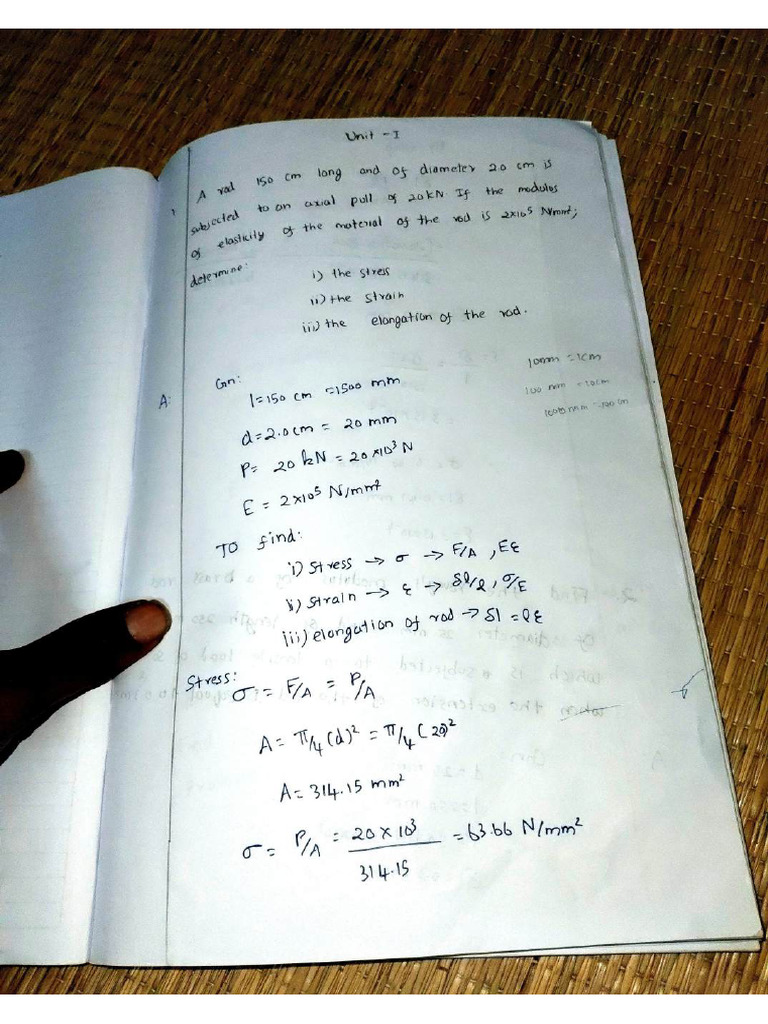 Unit - I
1 A rod 150 cm long and of diameter 2.0 cm is
subjected to an axial pull of 20 kN If the modulos
of elasticity of the material of the rod is 2×10⁵ N/mm²;
determine:
i) the stress
ii) the strain
iii) the elongation of the rod.
10mm = 1cm
100 mm = 10cm
1000 mm = 100 cm
A: Gn:
l=150 cm =1500 mm
d=2.0cm = 20 mm
P= 20 kN = 20×10³ N
E = 2×10⁵ N/mm²
To find:
i) Stress → σ → F/A , Eε
ii) Strain → ε → δl/l , σ/E
iii) elongation of rod → δl = lε
Stress:
σ = F/A = P/A
A = π/4 (d)² = π/4 (20)²
A = 314.15 mm²
σ = P/A = 20 × 10³ / 314.15 = 63.66 N/mm²